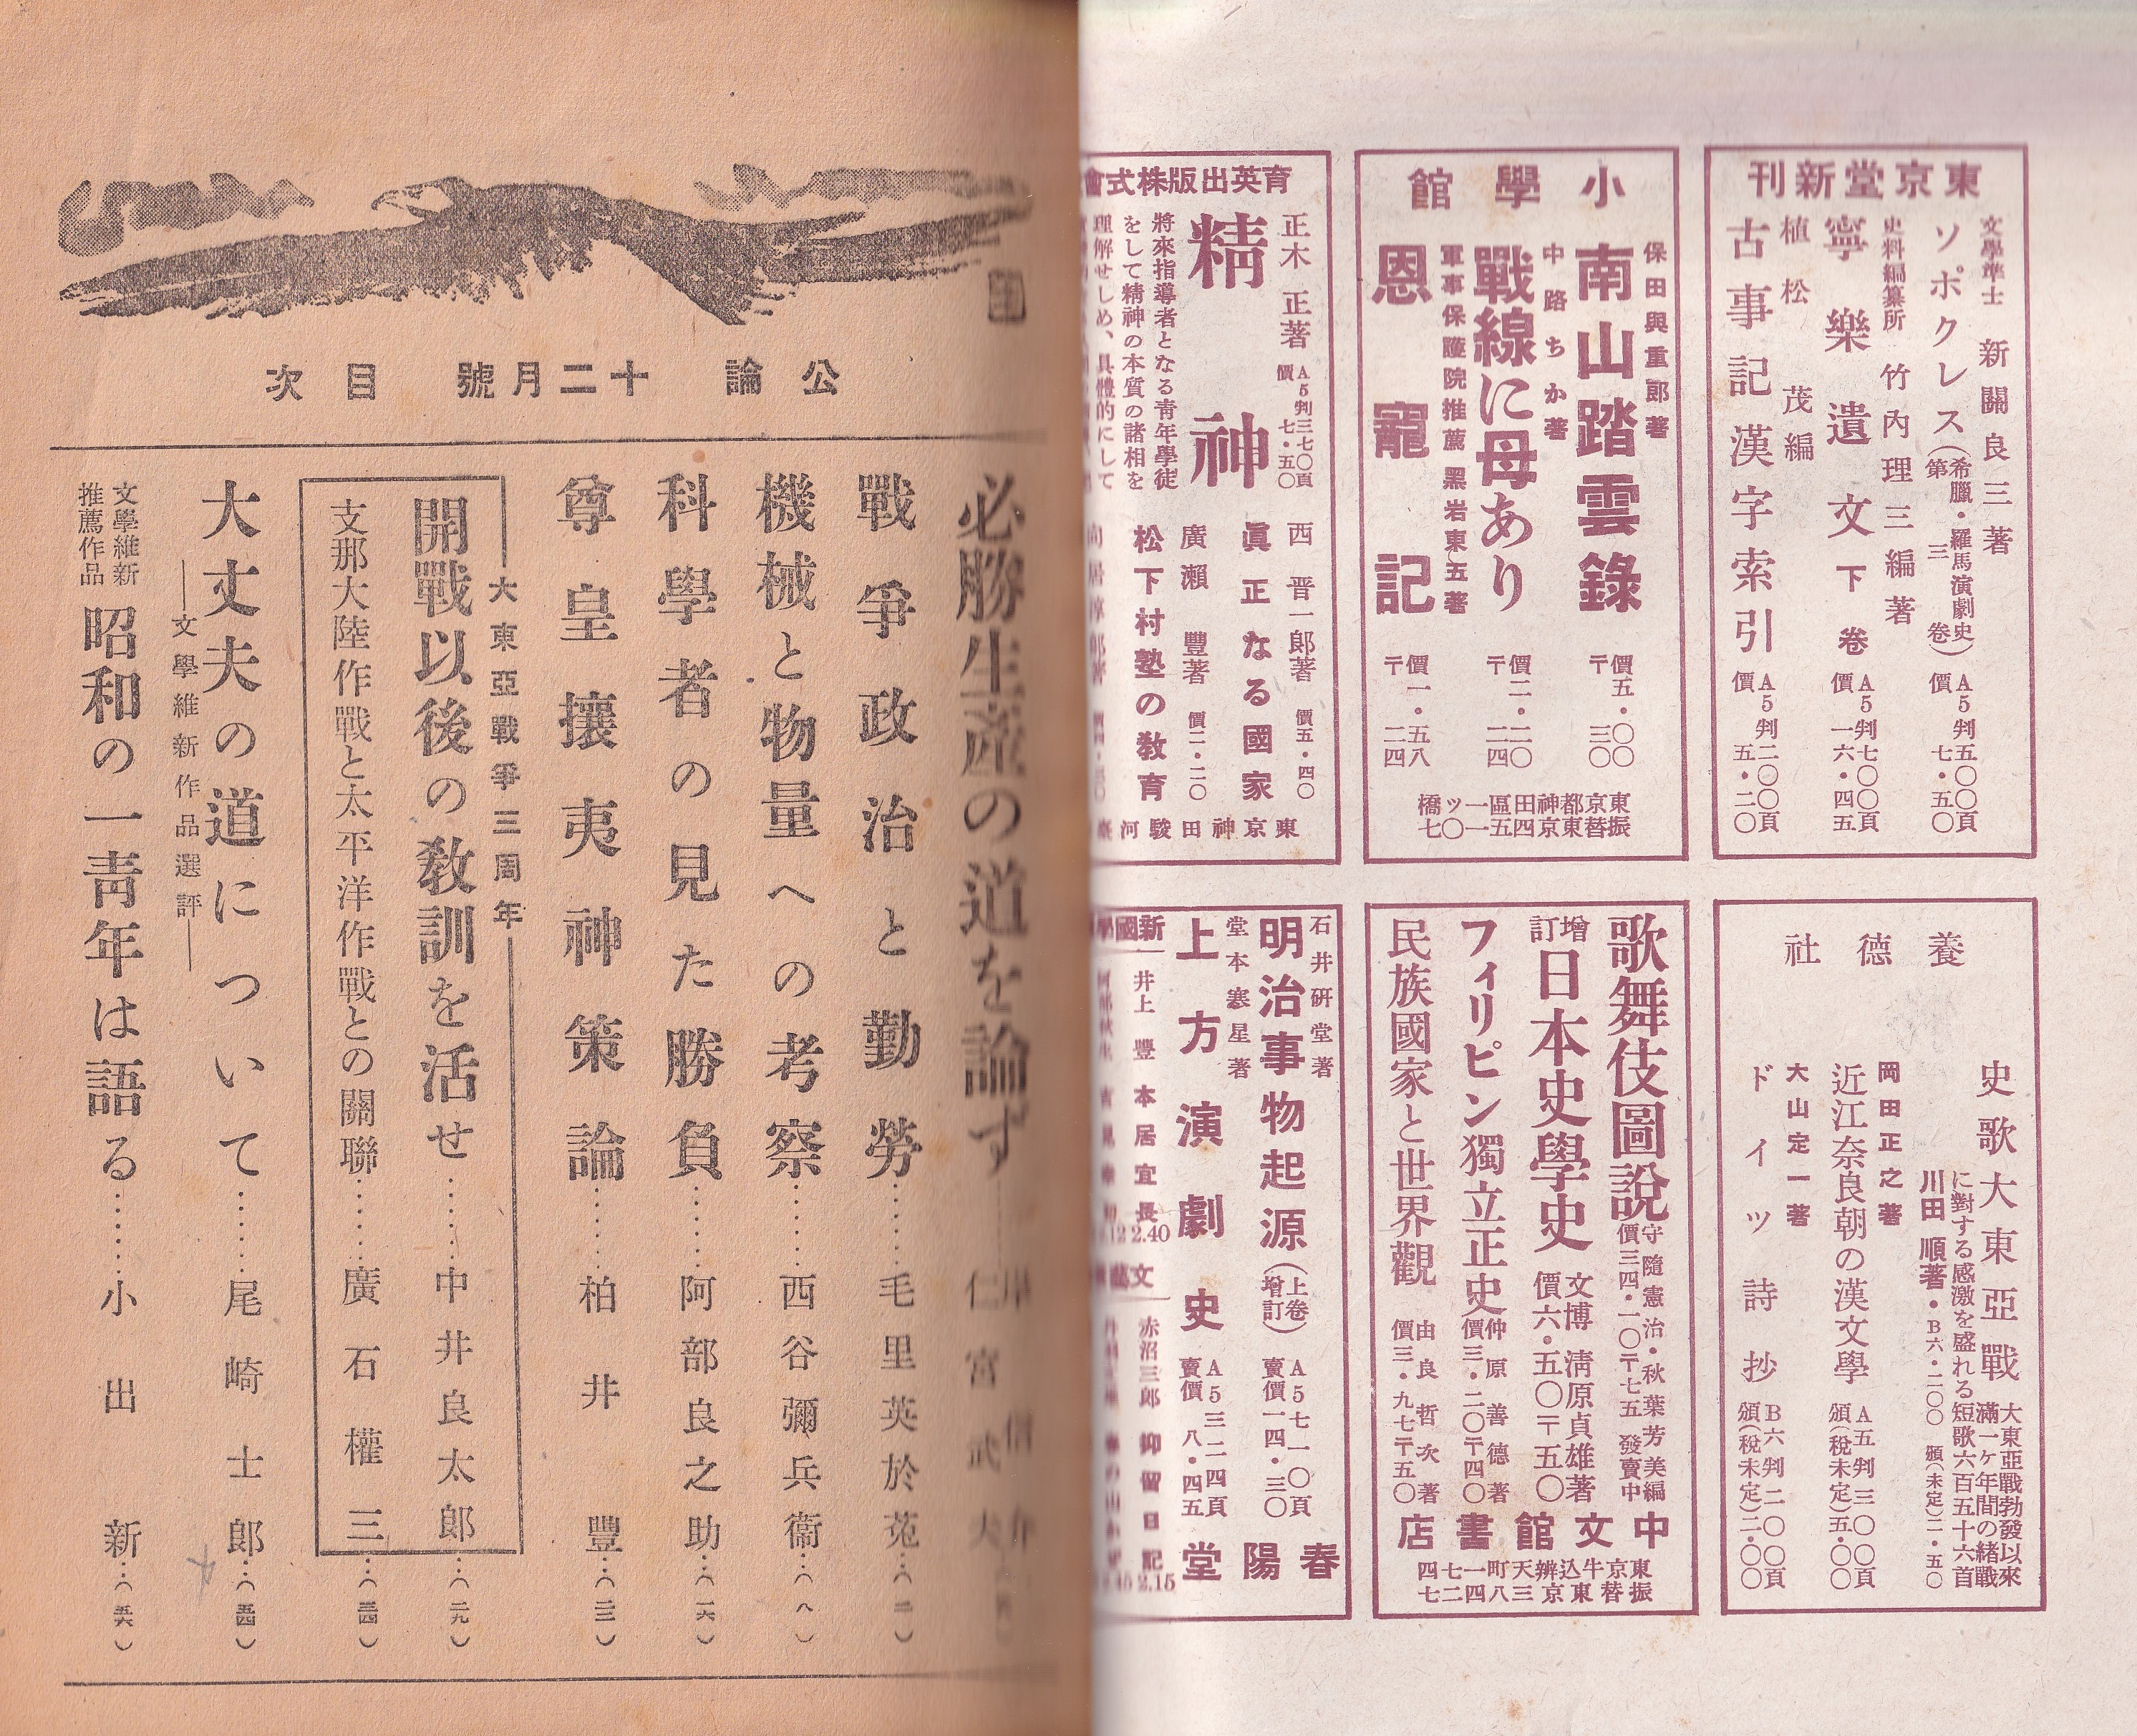 東京堂新刊
文學準士 新關良三著
ソポクレス(希臘・羅馬演劇史 第三卷)A5判五〇〇頁 價七・五〇
史料編纂所 竹內理三編著
寧樂遺文 下卷 A5判七〇〇頁 價一六・四五
植松茂編
古事記漢字索引 A5判二〇〇頁 價五・二〇
小學館
保田與重郎著
南山踏雲錄 價五・〇〇 〒三〇
中路ちか著
戰線に母あり 價二・二〇 〒二四
軍事保護院推薦 黑岩東五著
恩寵記 價一・五八 〒二四
東京都神田區一ッ橋
振替東京四五一一〇七
育英出版株式會
正木正著 A5判三七〇頁 價七・五〇
精神
將來指導者となる靑年學徒
をして精神の本質の諸相を
理解せしめ、具體的にして
西晋一郎著 價五・四〇
眞正なる國家
廣瀨豐著 價二・二〇
松下村塾の敎育
東京神田駿河臺
養德社
史歌大東亞戰 大東亞戰勃發以來
滿一ヶ年間の緒戰
に對する感激を盛れる短歌六百五十六首
川田順著・B六・二〇〇 頒(未定)二・五〇
岡田正之著
近江奈良朝の漢文學 A五判三〇〇頁 頒(稅未定)五・〇〇
大山定一著
ドイツ詩抄 B六判二〇〇頁 頒(稅未定)二・〇〇
歌舞伎圖說 守隨憲治・秋葉芳美編 價三四・一〇〒七五 發賣中
增訂 日本史學史 文博 淸原貞雄著 價六・五〇〒五〇
フィリピン獨立正史 仲原善德著 價三・二〇〒四〇
民族國家と世界觀 由良哲次著 價三・九七〒五〇
中文館書店
東京牛込辨天町一七四
振替東京三八四二七
石井硏堂著
明治事物起源(上卷 增訂) A5七一〇頁 賣價一四・三〇
堂本寒星著
上方演劇史 A5三二四頁 賣價八・四五
春陽堂
新國學
井上豐 本居宣長 2.40
赤沼三郎 抑留日記 2.15
公論 十二月號 目次
必勝生產の道を論ず
仁宮武夫
戰爭政治と勤勞……毛里英於菟…(二)
機械と物量への考察……西谷彌兵衞…(八)
科學者の見た勝負……阿部良之助…(一六)
尊皇攘夷神策論……柏井豐…(二三)
大東亞戰爭三周年
開戰以後の敎訓を活せ……中井良太郎…(二九)
支那大陸作戰と太平洋作戰との關聯……廣石權三…(三四)
大丈夫の道について……尾崎士郎…(五四)
文學維新作品選評
文學維新
推薦作品
昭和の一靑年は語る……小出新…(五六)